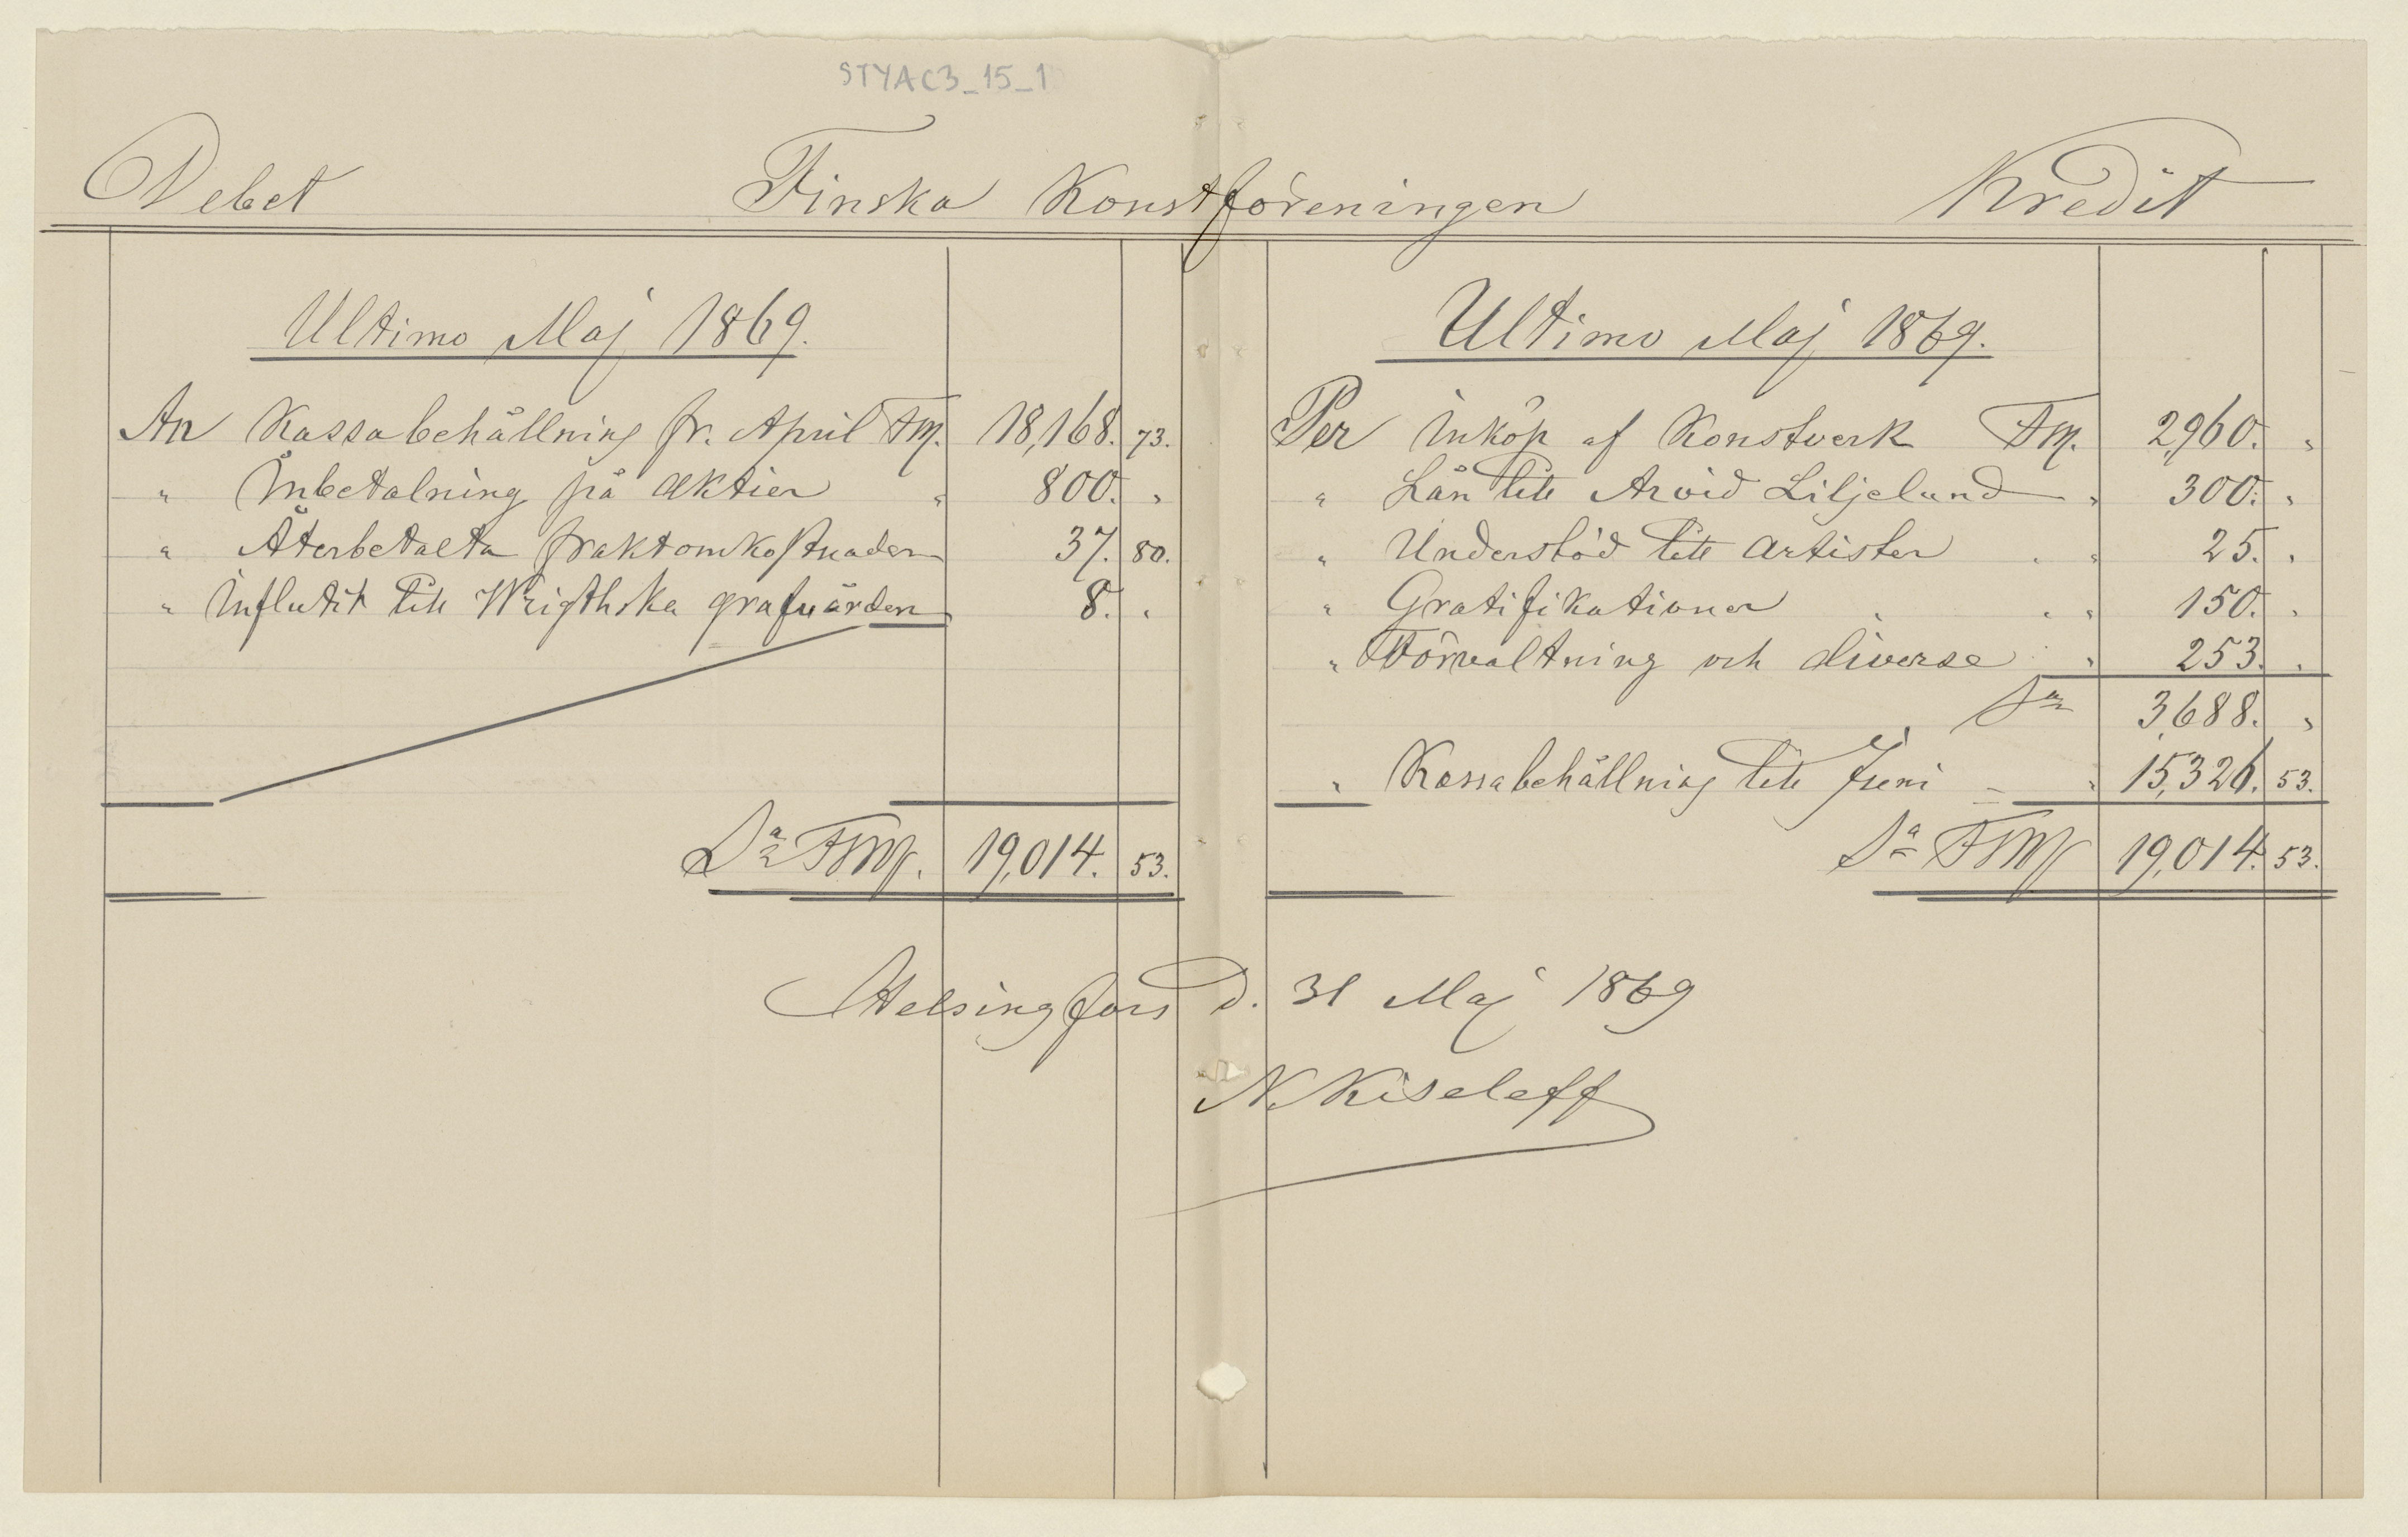 STYAC3_15_1
Debet Finska Konstföreningen Kredit
Ultimo Maj 1869.
An Kassabehållning fr. April FM. 18,168. 73.
" Inbetalning på aktier " 800. "
" Återbetalta fraktomkostnader 37. 80.
" Influtit till Wrigthska grafvården 8. "
Sa FMk. 19,014. 53.
Ultimo Maj 1869.
Per Inköp af Konstverk FM. 2,960. "
" Lån till Arvid Liljelund " 300. "
" Understöd till artister " 25. "
" Gratifikationer " 150. "
" Förvaltning och diverse " 253. "
Sa 3,688. "
" Kassabehållning till Juni " 15,326. 53.
Sa FMk 19,014. 53.
Helsingfors d. 31 Maj 1869
N. Kiseleff